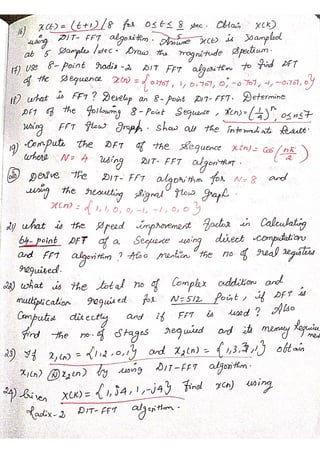 16) x(t) = (t+1)/8 for 0≤t≤8 sec. Obtain x(k)
using DIT-FFT algorithm. Assume x(t) is sampled
at 5 samples/sec. Draw the magnitude spectrum.
17) use 8-point Radix-2 DIT FFT algorithm to find DFT
of the sequence x(n) = {0.707, 1, 0.707, 0, -0.707, -1, -0.707, 0}
18) what is FFT? Develop an 8-point DIT-FFT. Determine
DFT of the following 8-Point sequence, x(n)=(1/4)^n, 0≤n≤7
using FFT flow graph. Show all the Intermediate Results.
19) compute the DFT of the sequence x(n) = cos(nπ/2)
where N=4 using DIT-FFT algorithm.
20) Derive the DIT-FFT algorithm for N=8 and
using the resulting signal flow graph.
x(n) = {1,1,0,0,-1,-1,0,0}
21) what is the speed improvement factor in calculating
64-point DFT of a Sequence using direct computation
and FFT algorithm? Also mention the no of real registers
required.
22) what is the total no of Complex addition and
multiplication required for N=512 Point, if DFT is
Computed directly and if FFT is used? Also
find the no. of Stages required and its memory Requirement
23) If x₁(n) = {1,2,0,1} and x₂(n) = {1,3,3,1} obtain
x₁(n) Ⓝ x₂(n) by using DIT-FFT algorithm.
24) Given X(K) = {1, j4, 1, -j4} find x(n) using
Radix-2 DIT-FFT algorithm.